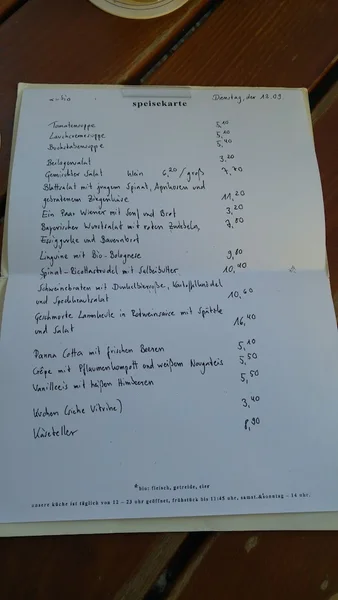 *=bio
Dienstag, den 18.09.
speisekarte
Tomatensuppe 5,10
Lauchcremesuppe 5,10
Buchstabensuppe 5,40
Beilagensalat 3,20
Gemischter Salat klein 6,20 /groß 7,70
Blattsalat mit jungem Spinat, Aprikosen und
gebratenem Ziegenkäse 11,20
Ein Paar Wiener mit Senf und Brot 3,20
Bayerischer Wurstsalat mit roten Zwiebeln, 7,80
Essiggurke und Bauernbrot
Linguine mit Bio-Bolognese 9,80
Spinat-Ricottastrudel mit Salbeibutter 10,40
Schweinebraten mit Dunkelbiersoße, Kartoffelknödel
und Speckkrautsalat 10,60
Geschmorte Lammkeule in Rotweinsauce mit Spätzle
und Salat 16,40
Panna Cotta mit frischen Beeren 5,10
Crêpe mit Pflaumenkompott und weißem Nougateis 5,50
Vanilleeis mit heißen Himbeeren 5,50
Kuchen (siehe Vitrine) 3,40
Käseteller 8,90
*bio: fleisch, getreide, eier
unsere küche ist täglich von 12 – 23 uhr geöffnet, frühstück bis 11:45 uhr, samst.&sonntag – 14 uhr.